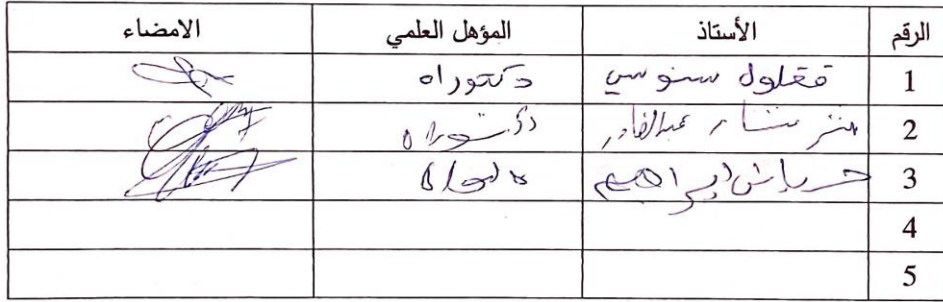 الرقم الأستاذ المؤهل العلمي الامضاء
1 قعلول سنوسي دكتوراه
2 عبدالقادر دكتوراه
3 حرباش إبراهيم دكتوراه
4
5